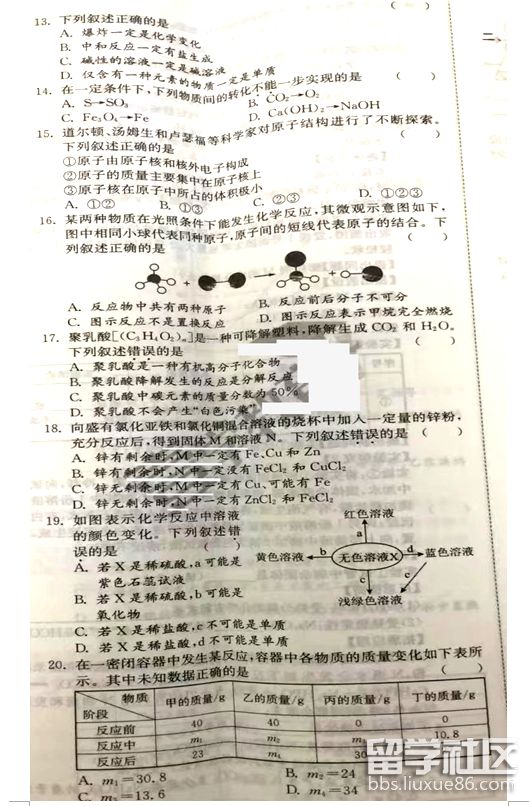 ( )
二、
13. 下列叙述正确的是
A. 爆炸一定是化学变化
B. 中和反应一定有盐生成
C. 碱性的溶液一定是碱溶液
D. 仅含有一种元素的物质一定是单质
14. 在一定条件下,下列物质间的转化不能一步实现的是 ( )
A. S→SO₃ B. CO₂→O₂
C. Fe₃O₄→Fe D. Ca(OH)₂→NaOH
15. 道尔顿、汤姆生和卢瑟福等科学家对原子结构进行了不断探索。
下列叙述正确的是 ( )
①原子由原子核和核外电子构成
②原子的质量主要集中在原子核上
③原子核在原子中所占的体积极小
A. ①② B. ①③ C. ②③ D. ①②③
16. 某两种物质在光照条件下能发生化学反应,其微观示意图如下,
图中相同小球代表同种原子,原子间的短线代表原子的结合。下
列叙述正确的是 ( )
+ → +
A. 反应物中共有两种原子 B. 反应前后分子不可分
C. 图示反应不是置换反应 D. 图示反应表示甲烷完全燃烧
17. 聚乳酸[(C₃H₄O₂)ₙ]是一种可降解塑料,降解生成 CO₂ 和 H₂O。
下列叙述错误的是
A. 聚乳酸是一种有机高分子化合物
B. 聚乳酸降解发生的反应是分解反应
C. 聚乳酸中碳元素的质量分数为50%
D. 聚乳酸不会产生“白色污染”
18. 向盛有氯化亚铁和氯化铜混合溶液的烧杯中加入一定量的锌粉,
充分反应后,得到固体M和溶液N。下列叙述错误的是 ( )
A. 锌有剩余时,M中一定有Fe、Cu 和 Zn
B. 锌有剩余时,N中一定没有FeCl₂ 和 CuCl₂
C. 锌无剩余时,M中一定有Cu、可能有 Fe
D. 锌无剩余时,N中一定有ZnCl₂ 和 FeCl₂
19. 如图表示化学反应中溶液
的颜色变化。下列叙述错
误的是 ( )
A. 若 X 是稀硫酸,a可能是
紫色石蕊试液
B. 若 X 是稀硫酸,b可能是
氧化物
C. 若 X 是稀盐酸,c不可能是单质
D. 若 X 是稀盐酸,d不可能是单质
红色溶液
a
黄色溶液 b 无色溶液X d 蓝色溶液
c e
浅绿色溶液
20. 在一密闭容器中发生某反应,容器中各物质的质量变化如下表所
示。其中未知数据正确的是 ( )
物质 甲的质量/g 乙的质量/g 丙的质量/g 丁的质量/g
阶段
反应前 40 40 0 0
反应中 m₁ m₂ m₃ 10.8
反应后 23 m₄ 30
A. m₁=30.8 B. m₂=24
C. m₃=13.6 D. m₄=34
留学社区
bbs.liuxue86.com